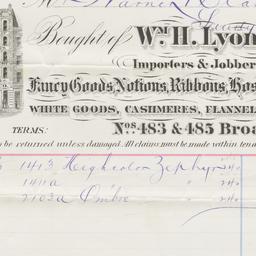 Mr Warner
Bought of Wm. H. Lyon
Importers & Jobber
Fancy Goods, Notions, Ribbons, Hos
WHITE GOODS, CASHMERES, FLANNEL
TERMS: Nos. 483 & 485 Broa
o be returned unless damaged. All claims must be made within ten d
1413 Zephyr
1411a "
2103a Ombre "